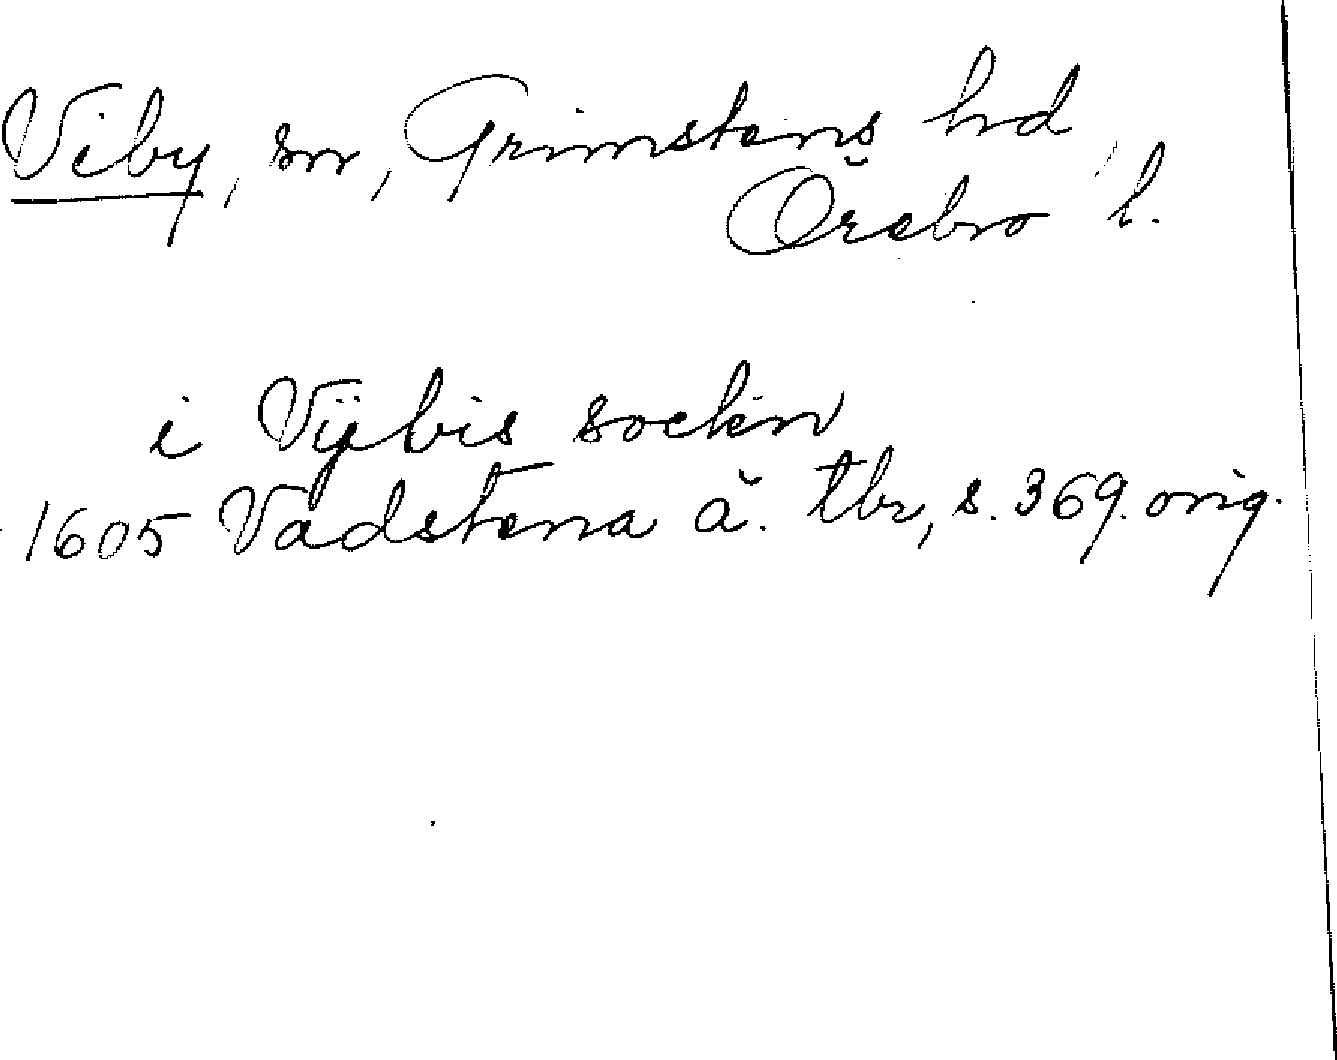 Viby, sn, Grimstens hd,
Örebro l.
i Vÿbis sockn
1605 Vadstena ä. tbr, s. 369. orig.